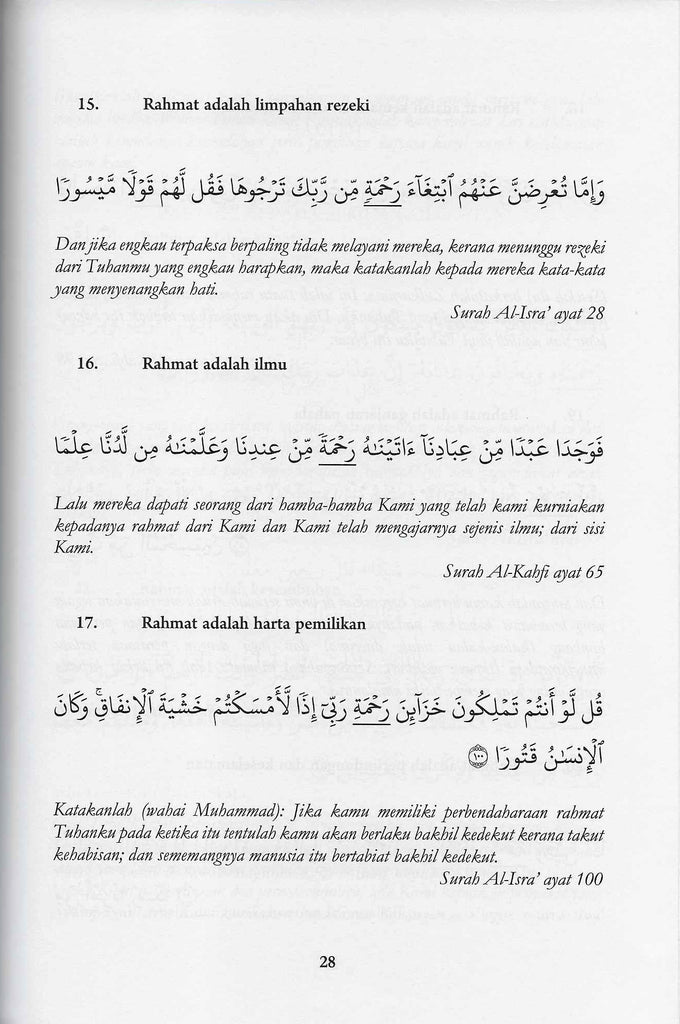 15. Rahmat adalah limpahan rezeki
وَإِمَّا تُعْرِضَنَّ عَنْهُمُ ٱبْتِغَآءَ رَحْمَةٍ مِّن رَّبِّكَ تَرْجُوهَا فَقُل لَّهُمْ قَوْلًا مَّيْسُورًا
Dan jika engkau terpaksa berpaling tidak melayani mereka, kerana menunggu rezeki
dari Tuhanmu yang engkau harapkan, maka katakanlah kepada mereka kata-kata
yang menyenangkan hati.
Surah Al-Isra' ayat 28
16. Rahmat adalah ilmu
فَوَجَدَا عَبْدًا مِّنْ عِبَادِنَآ ءَاتَيْنَٰهُ رَحْمَةً مِّنْ عِندِنَا وَعَلَّمْنَٰهُ مِن لَّدُنَّا عِلْمًا
Lalu mereka dapati seorang dari hamba-hamba Kami yang telah kami kurniakan
kepadanya rahmat dari Kami dan Kami telah mengajarnya sejenis ilmu; dari sisi
Kami.
Surah Al-Kahfi ayat 65
17. Rahmat adalah harta pemilikan
قُل لَّوْ أَنتُمْ تَمْلِكُونَ خَزَآئِنَ رَحْمَةِ رَبِّىٓ إِذًا لَّأَمْسَكْتُمْ خَشْيَةَ ٱلْإِنفَاقِ ۚ وَكَانَ
ٱلْإِنسَٰنُ قَتُورًا ١٠٠
Katakanlah (wahai Muhammad): Jika kamu memiliki perbendaharaan rahmat
Tuhanku pada ketika itu tentulah kamu akan berlaku bakhil kedekut kerana takut
kehabisan; dan sememangnya manusia itu bertabiat bakhil kedekut.
Surah Al-Isra' ayat 100
28